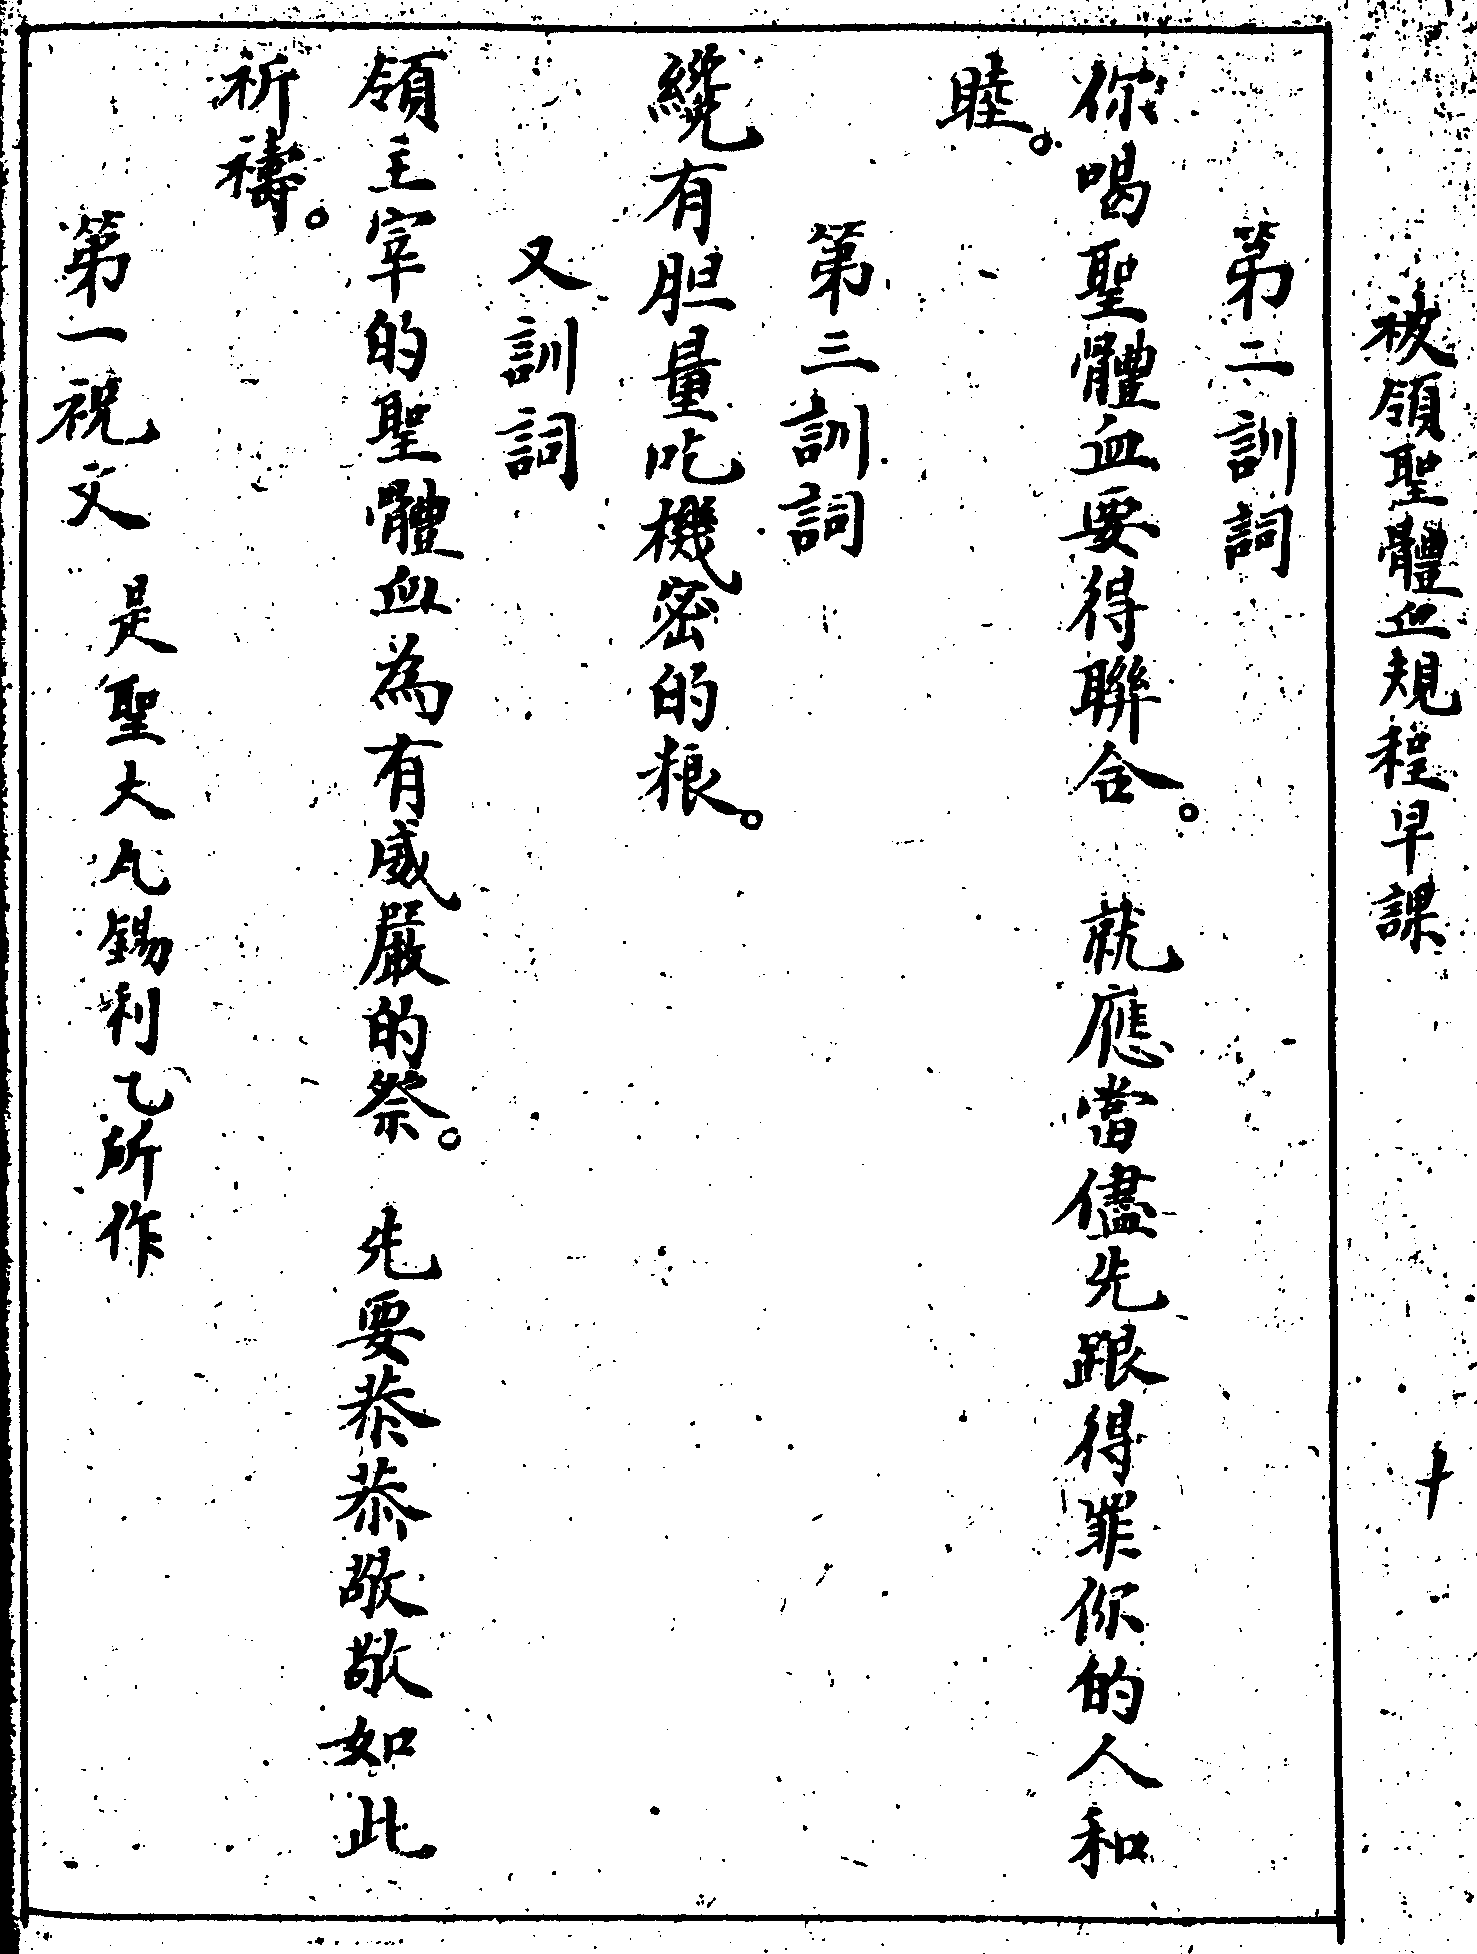 被領聖體血規程早課 十
第二訓詞
你喝聖體血要得聯合。 就應當儘先跟得罪你的人和
睦。
第三訓詞
纔有胆量吃機密的粮。
又訓詞
領主宰的聖體血為有威嚴的祭。 先要恭恭敬敬如此
祈禱。
第一祝文 是聖大凡錫利乙所作